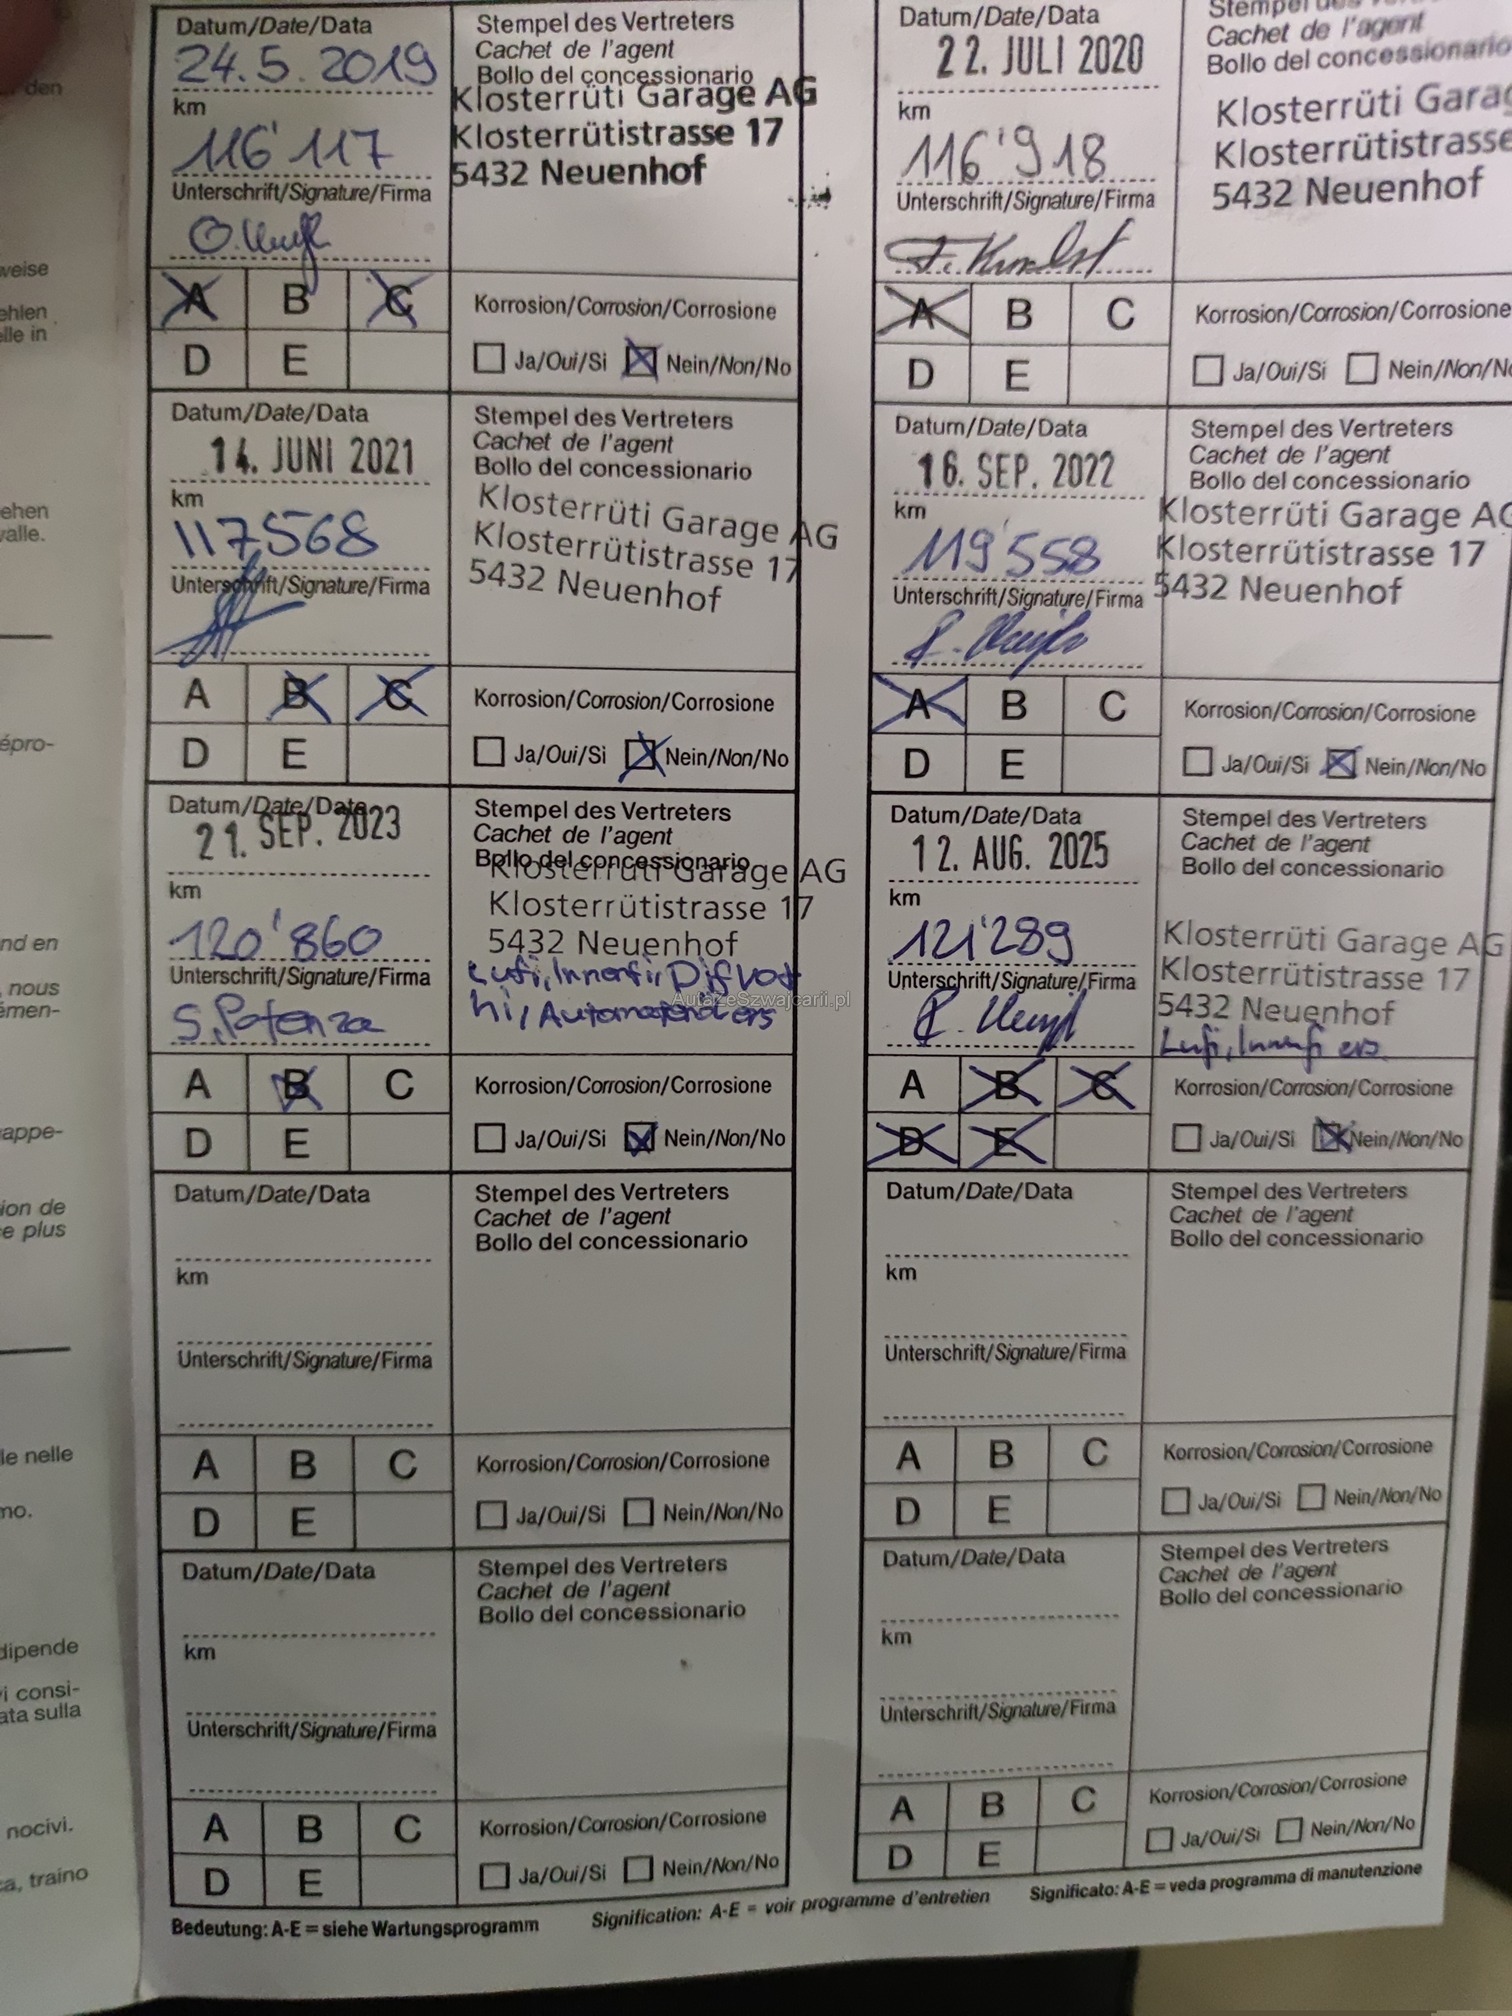 den
weise
ehlen
elle in
ehen
valle.
épro-
nd en
, nous
émen-
appe-
ion de
e plus
le nelle
no.
dipende
vi consi-
ata sulla
nocivi.
ca, traino
Datum/Date/Data
24.5.2019
km
116'117
Unterschrift/Signature/Firma
Stempel des Vertreters
Cachet de l'agent
Bollo del concessionario
Klosterrüti Garage AG
Klosterrütistrasse 17
5432 Neuenhof
A B C
D E
Korrosion/Corrosion/Corrosione
Ja/Oui/Si Nein/Non/No
Datum/Date/Data
22. JULI 2020
km
116'918
Unterschrift/Signature/Firma
Cachet de l'agent
Bollo del concessionario
Klosterrüti Garag
Klosterrütistrasse
5432 Neuenhof
A B C
D E
Korrosion/Corrosion/Corrosione
Ja/Oui/Si Nein/Non/No
Datum/Date/Data
14. JUNI 2021
km
117,568
Unterschrift/Signature/Firma
Stempel des Vertreters
Cachet de l'agent
Bollo del concessionario
Klosterrüti Garage AG
Klosterrütistrasse 17
5432 Neuenhof
A B C
D E
Korrosion/Corrosion/Corrosione
Ja/Oui/Si Nein/Non/No
Datum/Date/Data
16. SEP. 2022
km
119'558
Unterschrift/Signature/Firma
Stempel des Vertreters
Cachet de l'agent
Bollo del concessionario
Klosterrüti Garage AG
Klosterrütistrasse 17
5432 Neuenhof
A B C
D E
Korrosion/Corrosion/Corrosione
Ja/Oui/Si Nein/Non/No
Datum/Date/Data
21. SEP. 2023
km
120'860
Unterschrift/Signature/Firma
S. Potenza
Stempel des Vertreters
Cachet de l'agent
Bollo del concessionario
Klosterrüti Garage AG
Klosterrütistrasse 17
5432 Neuenhof
Lufi, Innenfi,
AutazeSzwajcarii.pl
A B C
D E
Korrosion/Corrosion/Corrosione
Ja/Oui/Si Nein/Non/No
Datum/Date/Data
12. AUG. 2025
km
121'289
Unterschrift/Signature/Firma
Stempel des Vertreters
Cachet de l'agent
Bollo del concessionario
Klosterrüti Garage AG
Klosterrütistrasse 17
5432 Neuenhof
Lufi, Innenfi ers
A B C
D E
Korrosion/Corrosion/Corrosione
Ja/Oui/Si Nein/Non/No
Datum/Date/Data
km
Unterschrift/Signature/Firma
Stempel des Vertreters
Cachet de l'agent
Bollo del concessionario
A B C
D E
Korrosion/Corrosion/Corrosione
Ja/Oui/Si Nein/Non/No
Datum/Date/Data
km
Unterschrift/Signature/Firma
Stempel des Vertreters
Cachet de l'agent
Bollo del concessionario
A B C
D E
Korrosion/Corrosion/Corrosione
Ja/Oui/Si Nein/Non/No
Datum/Date/Data
km
Unterschrift/Signature/Firma
Stempel des Vertreters
Cachet de l'agent
Bollo del concessionario
A B C
D E
Korrosion/Corrosion/Corrosione
Ja/Oui/Si Nein/Non/No
Datum/Date/Data
km
Unterschrift/Signature/Firma
Stempel des Vertreters
Cachet de l'agent
Bollo del concessionario
A B C
D E
Korrosion/Corrosion/Corrosione
Ja/Oui/Si Nein/Non/No
Bedeutung: A-E = siehe Wartungsprogramm Signification: A-E = voir programme d'entretien Significato: A-E = veda programma di manutenzione